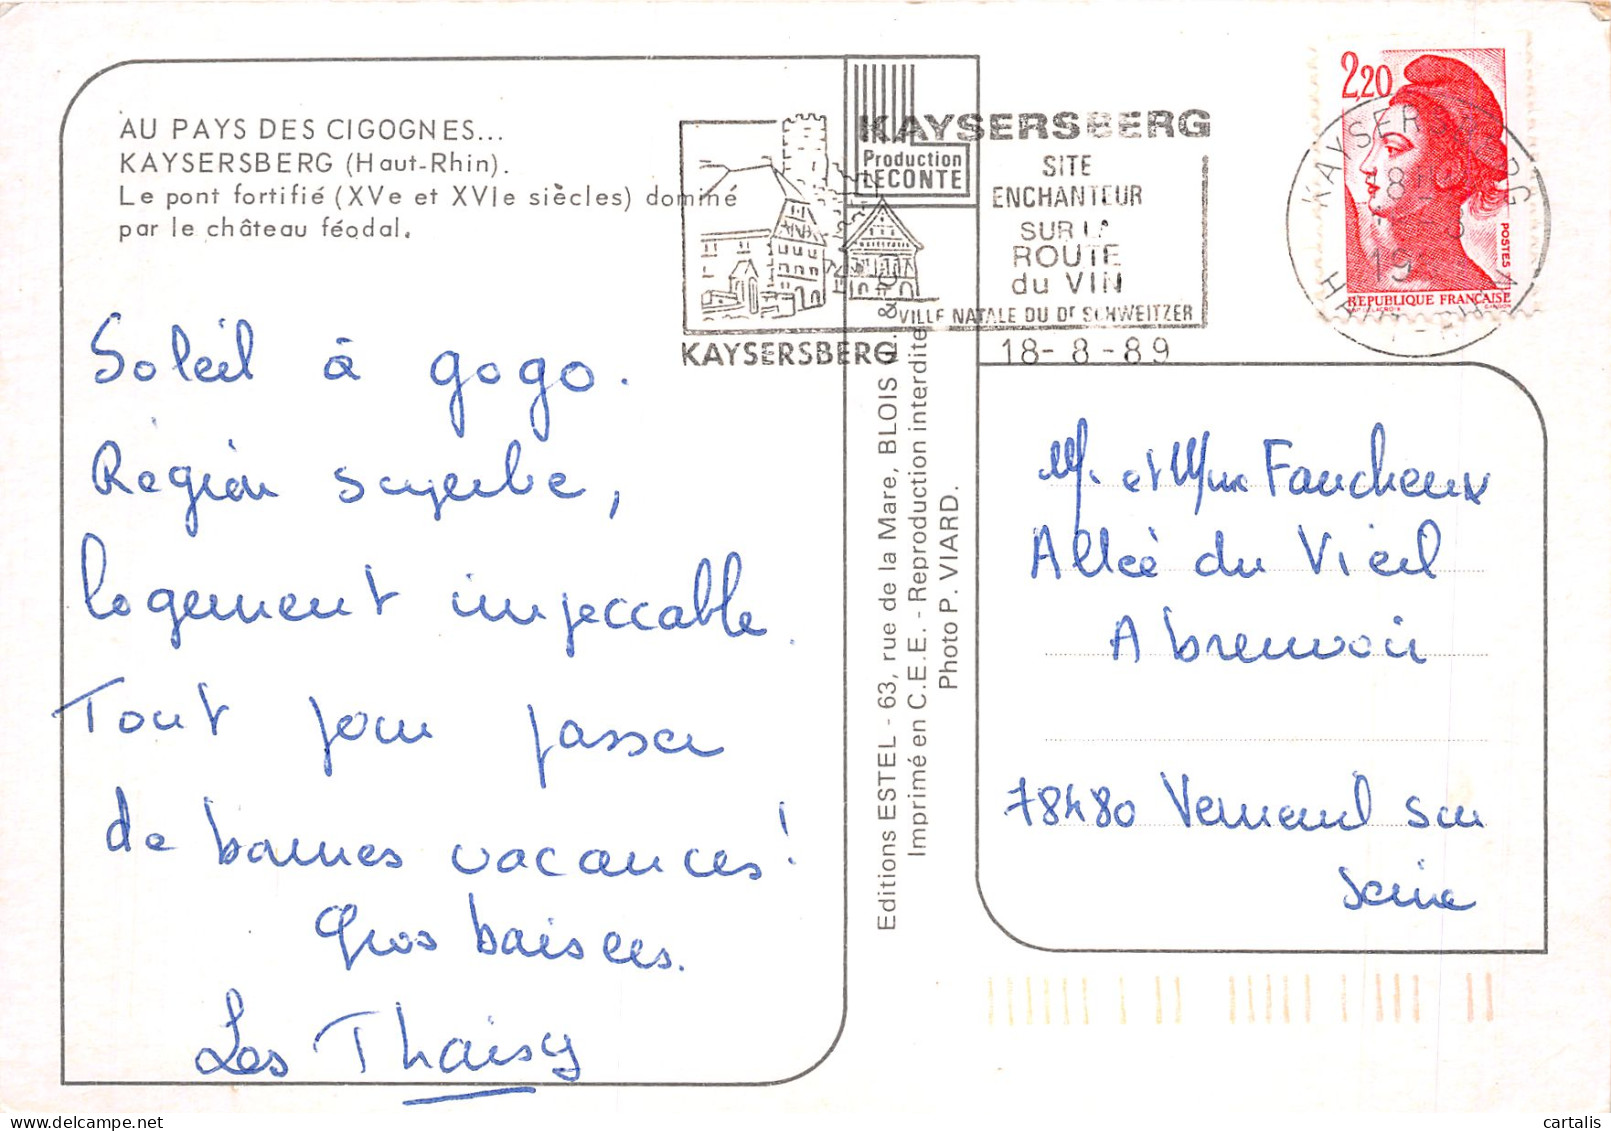 AU PAYS DES CIGOGNES...
KAYSERSBERG (Haut-Rhin).
Le pont fortifié (XVe et XVIe siècles) dominé
par le château féodal.
Soleil à gogo.
Région superbe,
logement impeccable.
Tout pour passer
de bonnes vacances!
Gros baisers.
Les Thaisy
KAYSERSBERG
Production
LECONTE
KAYSERSBERG
SITE
ENCHANTEUR
SUR LA
ROUTE
du VIN
VILLE NATALE DU Dr SCHWEITZER
18-8-89
Editions ESTEL - 63, rue de la Mare, BLOIS
Imprimé en C.E.E. - Reproduction interdite
Photo P. VIARD.
2,20
POSTES
REPUBLIQUE FRANÇAISE
KAYSERSBERG
HAUT-RHIN
M. et Mme Faucheux
Allée du Vieil
Abreuvoir
78480 Verneuil sur
Seine
cartalis
delcampe.net